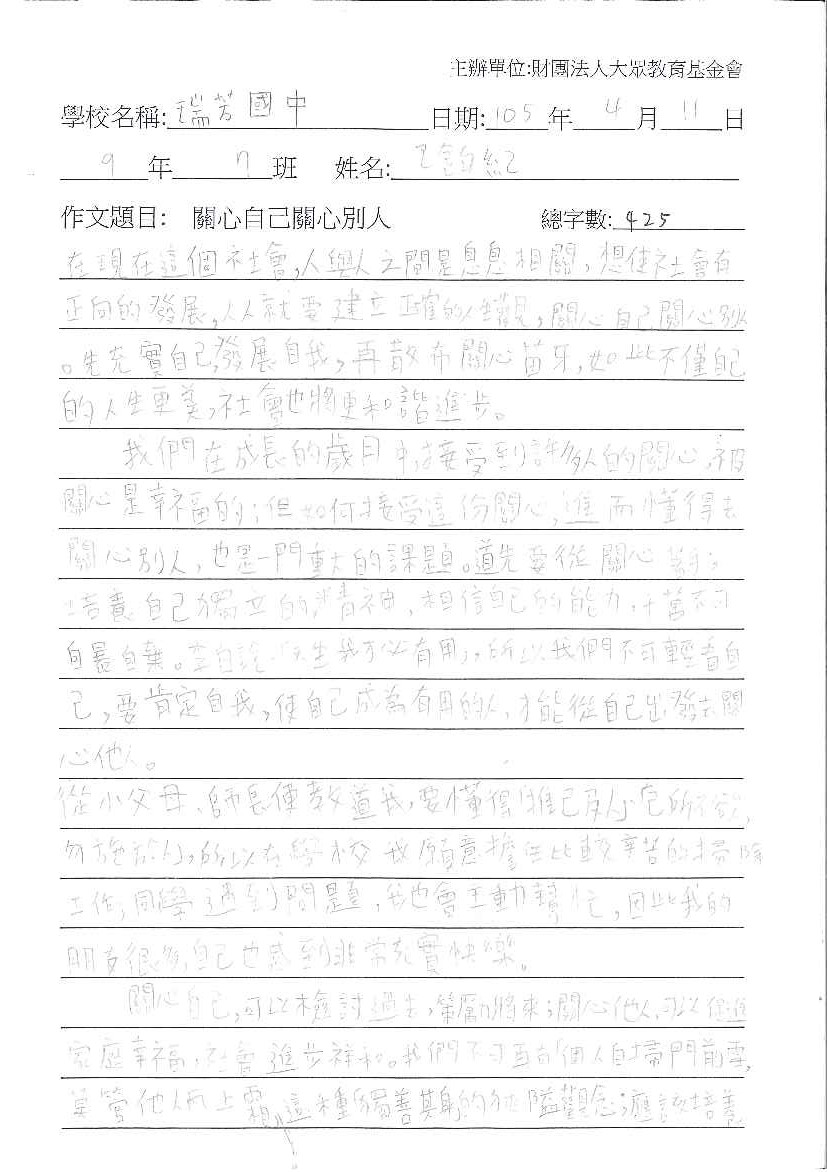 主辦單位:財團法人大眾教育基金會
學校名稱:瑞芳國中 日期:105年4月11日
9年7班 姓名:
作文題目: 關心自己關心別人 總字數:425
在現在這個社會,人與人之間是息息相關,想使社會有
正向的發展,人人就要建立正確的人生觀,關心自己關心別人
。先充實自己,發展自我,再散布關心苗牙,如此不僅自己
的人生更美,社會也將更和諧進步。
我們在成長的歲月中,接受到許多人的關心,被
關心是幸福的;但如何接受這份關心,進而懂得去
關心別人,也是一門重大的課題。首先要從關心
培養自己獨立的精神,相信自己的能力,千萬不可
自暴自棄。李白說:「天生我才必有用」,所以我們不可輕看自
己,要肯定自我,使自己成為有用的人,才能從自己出發去關
心他人。
從小父母、師長便教導我,要懂得推己及人,己所不欲,
勿施於人,所以在學校我願意擔任比較辛苦的掃除
工作;同學遇到問題,我也會主動幫忙,因此我的
朋友很多,自己也感到非常充實快樂。
關心自己,可以檢討過去,策勵將來;關心他人,可以促進
家庭幸福,社會進步祥和。我們不可再有個人自掃門前雪,
莫管他人瓦上霜,這種獨善其身的狹隘觀念;應該培養